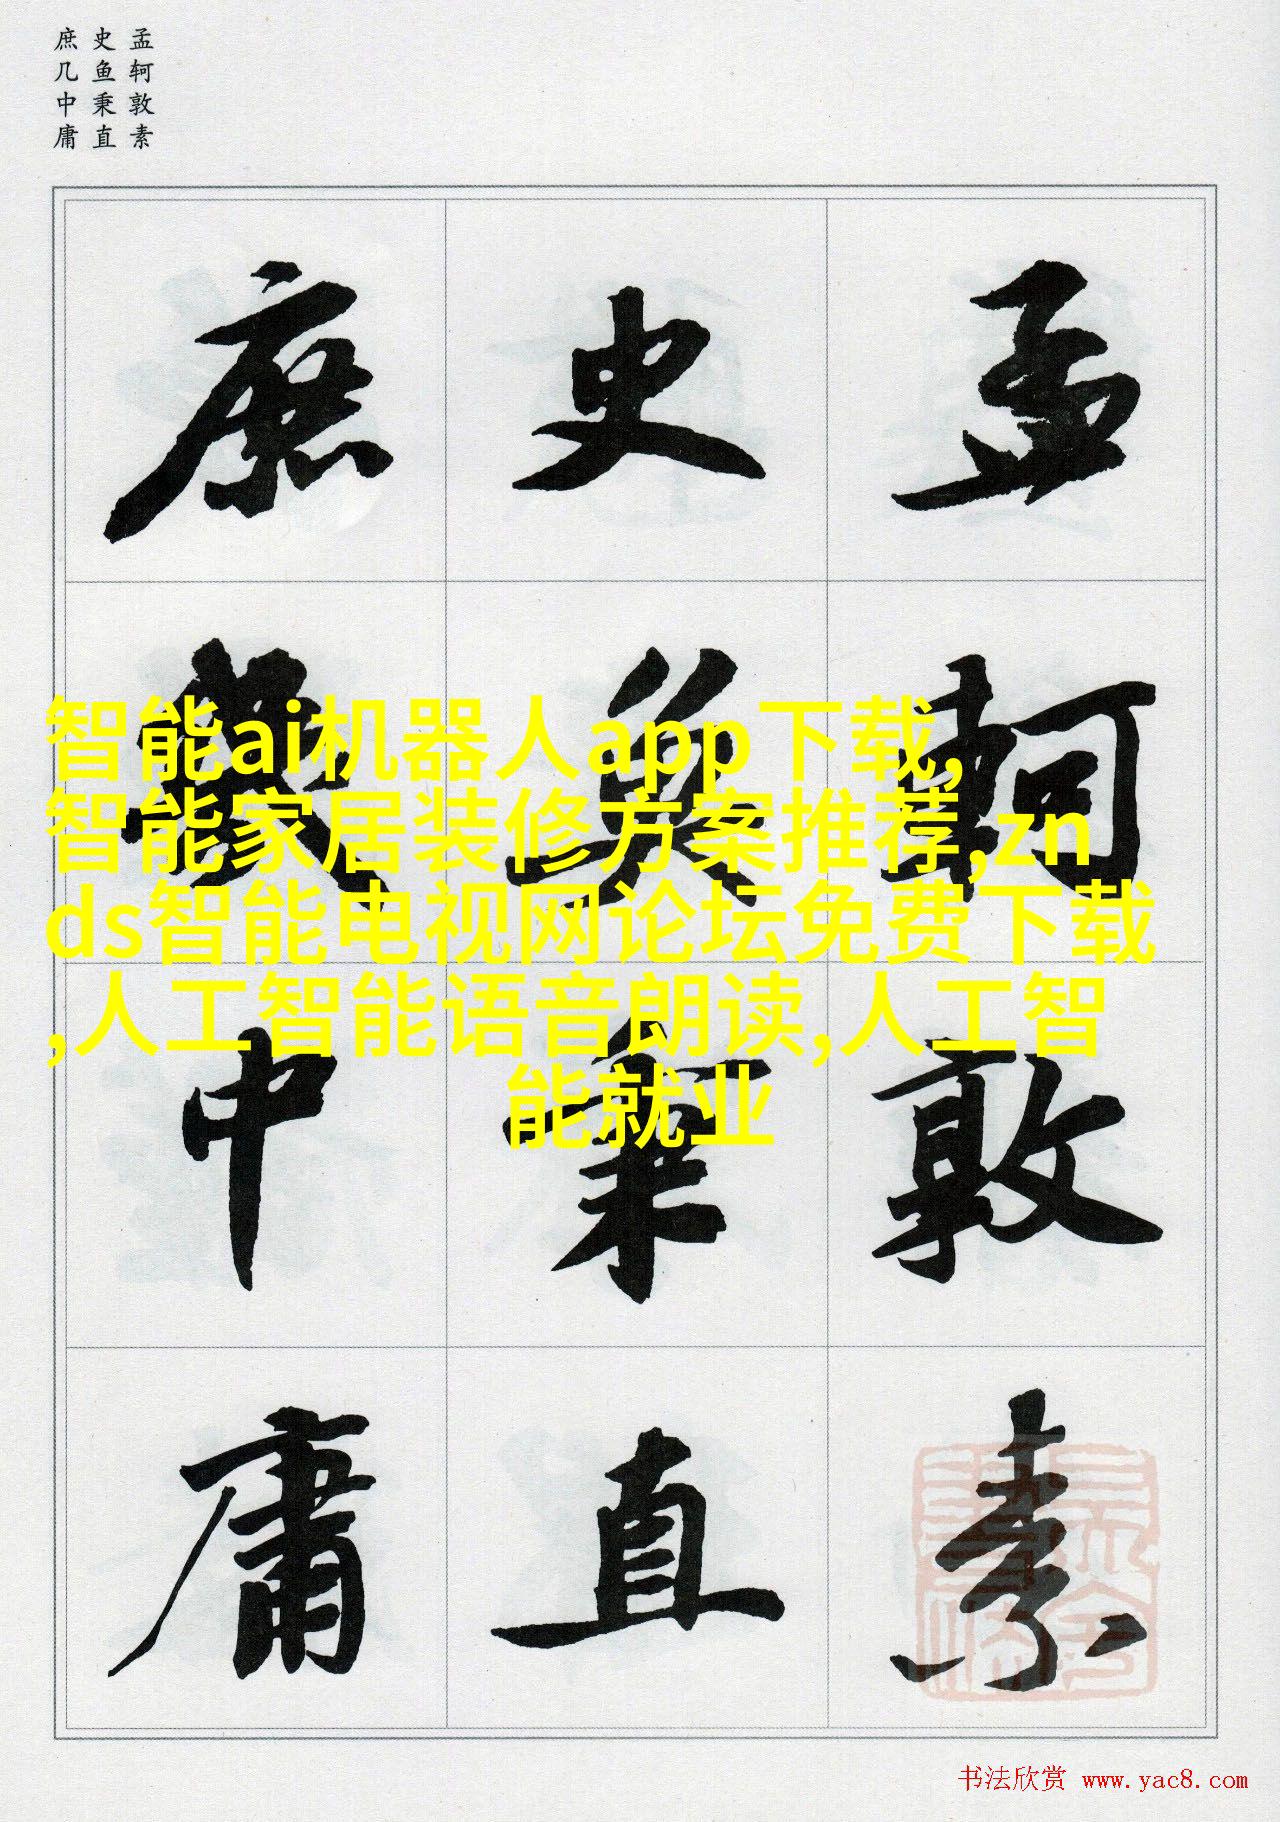 孟轲敦素
史鱼秉直
庶几中庸
孟軻敦素
史魚秉直
庶幾中庸
智能ai机器人app下载,
智能家居装修方案推荐,zn
ds智能电视网论坛免费下载
,人工智能语音朗读,人工智
能就业
书法欣赏 www.yac8.com